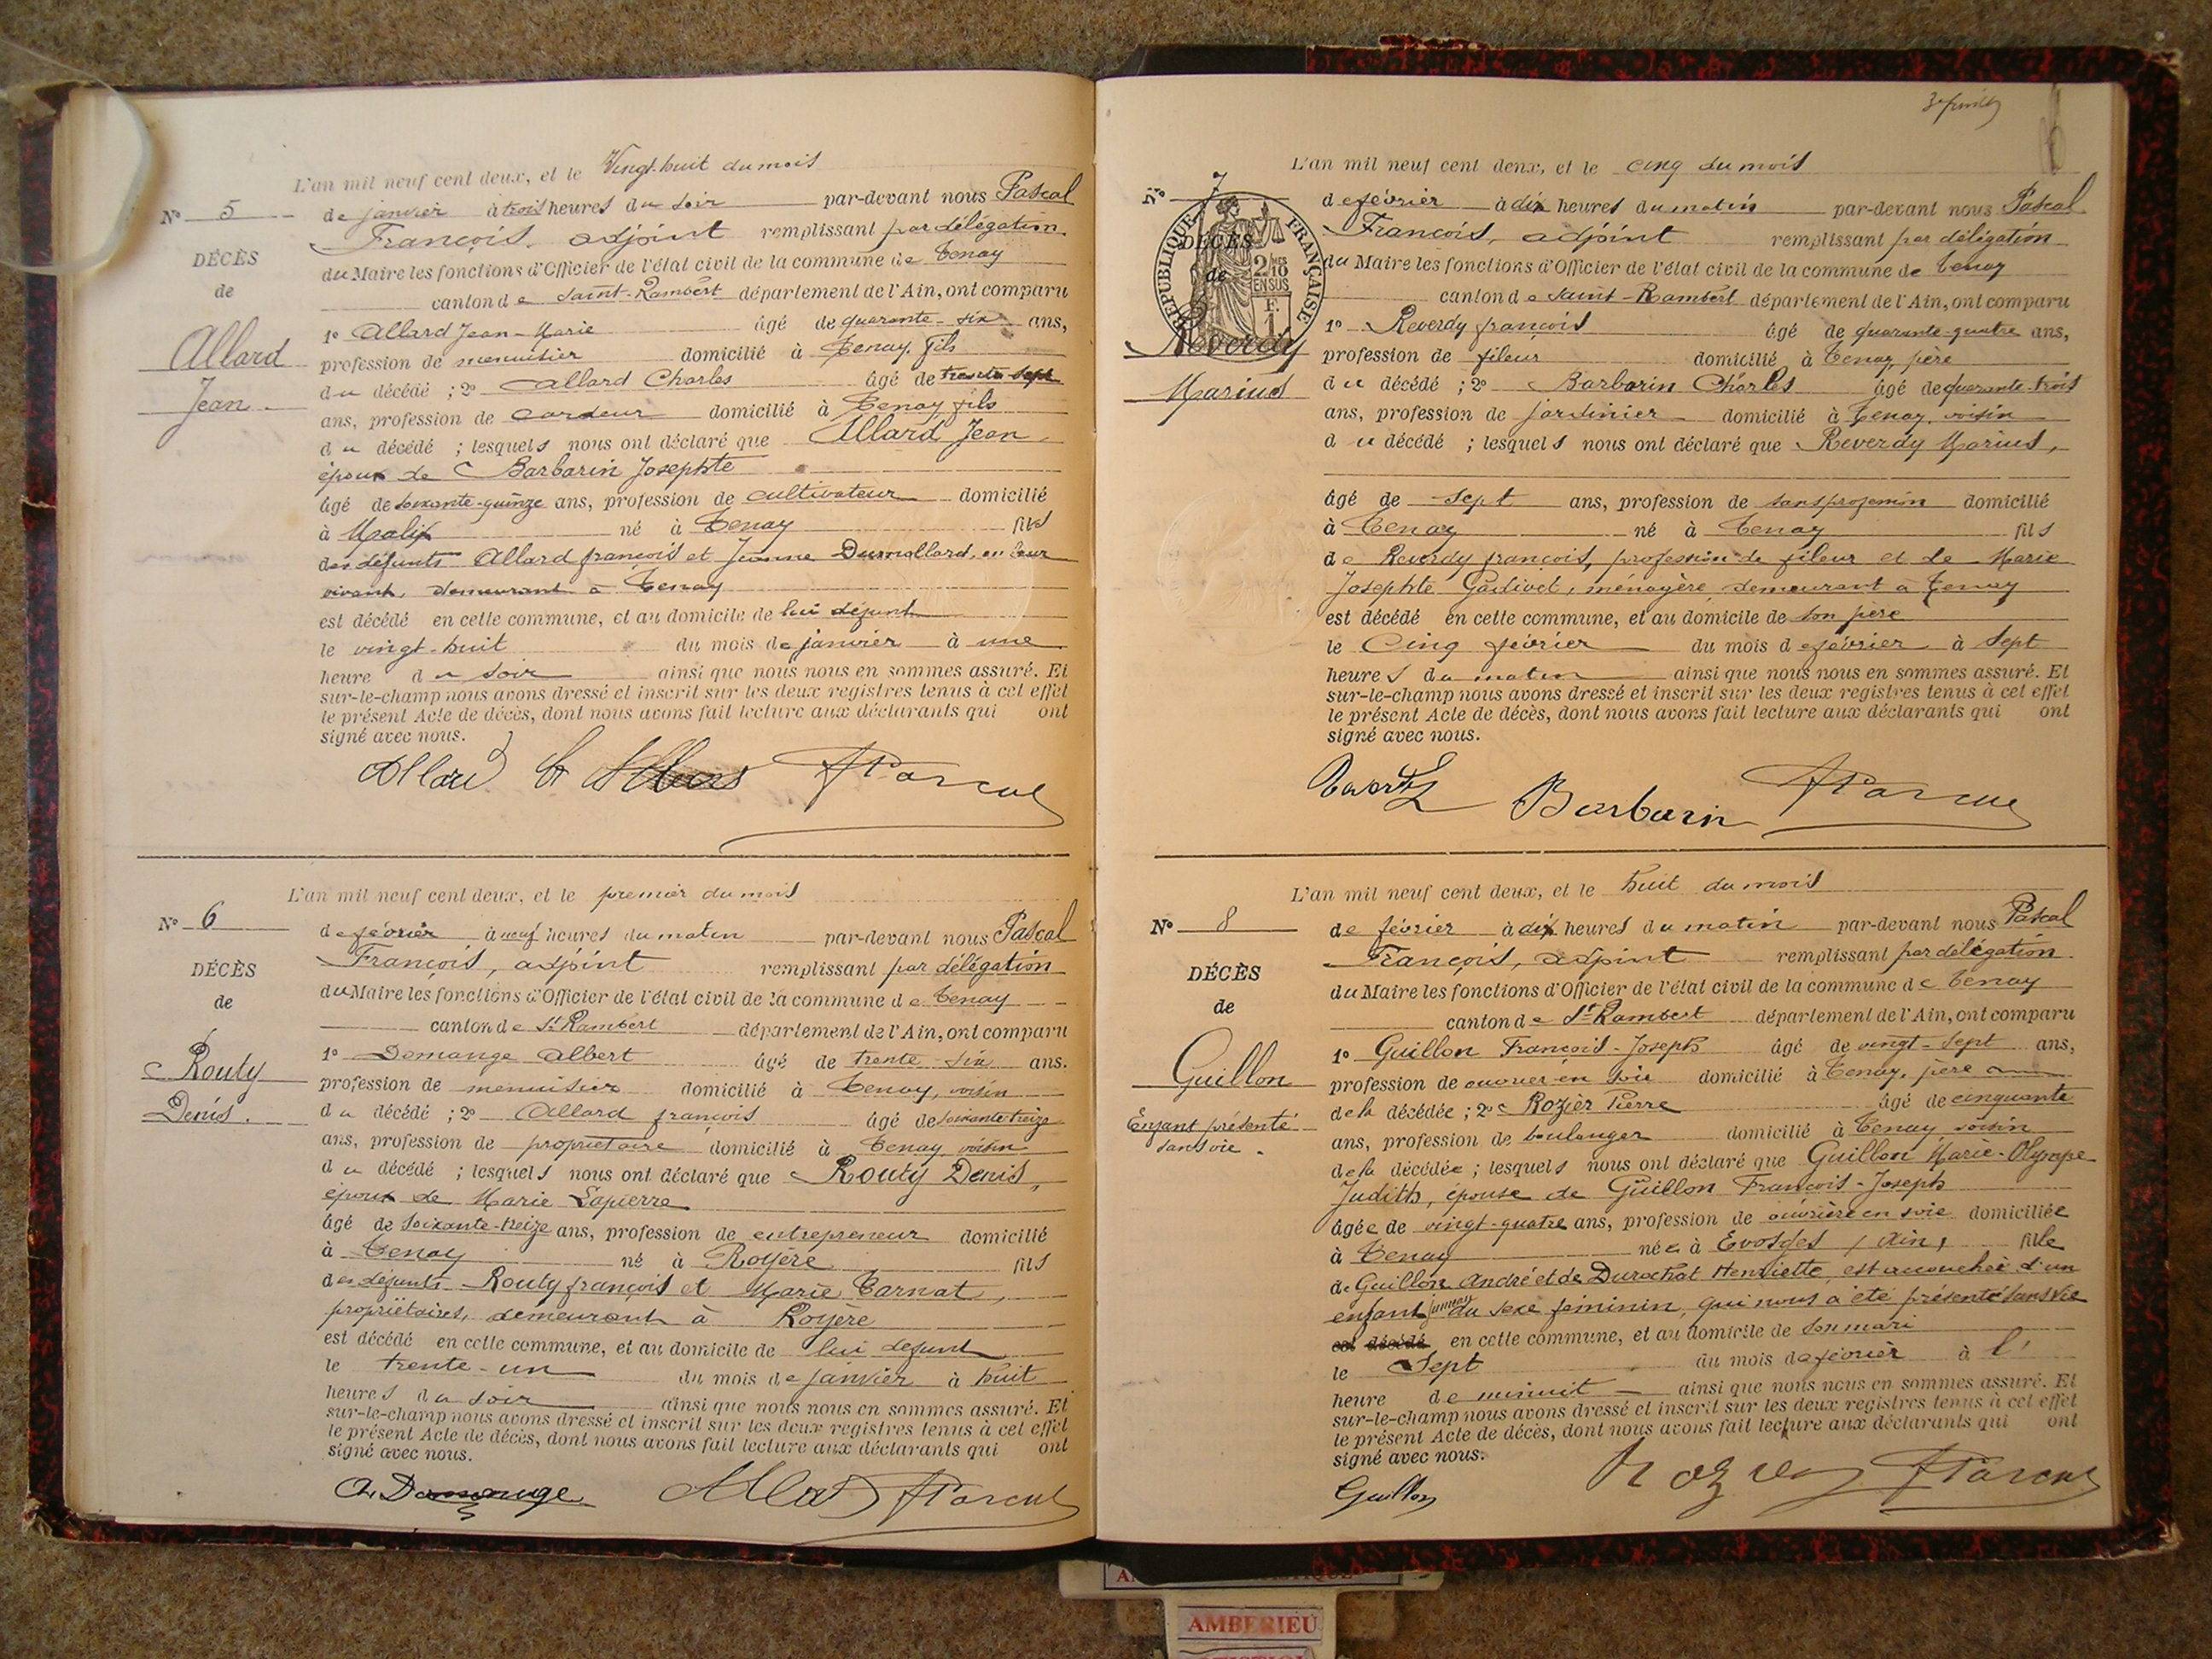 L'an mil neuf cent deux, et le Vingt-huit du mois
N° 5
de janvier à trois heures du soir par-devant nous Pascal
François, adjoint remplissant par délégation
DÉCÈS
du Maire les fonctions d'Officier de l'état civil de la commune de Tenay
de
canton de Saint-Rambert département de l'Ain, ont comparu
1° Allard Jean-Marie âgé de quarante-six ans,
Allard
profession de menuisier domicilié à Tenay, fils
du décédé ; 2° Allard Charles âgé de trente-sept
Jean
ans, profession de cardeur domicilié à Tenay fils
du décédé ; lesquels nous ont déclaré que Allard Jean,
époux de Barbarin Josephte
âgé de soixante-quinze ans, profession de cultivateur domicilié
à Malix né à Tenay fils
des défunts Allard françois et Jeanne Dumollard, en leur
vivant, demeurant à Tenay
est décédé en cette commune, et au domicile de lui défunt
le vingt-huit du mois de janvier à une
heure du soir ainsi que nous nous en sommes assuré. Et
sur-le-champ nous avons dressé et inscrit sur les deux registres tenus à cet effet
le présent Acte de décès, dont nous avons fait lecture aux déclarants qui ont
signé avec nous.
Allard Ch Pascal
L'an mil neuf cent deux, et le premier du mois
N° 6
de février à neuf heures du matin par-devant nous Pascal
François, adjoint remplissant par délégation
DÉCÈS
du Maire les fonctions d'Officier de l'état civil de la commune de Tenay
de
canton de St Rambert département de l'Ain, ont comparu
1° Demange Albert âgé de trente-six ans.
Routy
profession de menuisier domicilié à Tenay, voisin
Denis.
du décédé ; 2° Allard françois âgé de soixante-treize
ans, profession de propriétaire domicilié à Tenay, voisin
du décédé ; lesquels nous ont déclaré que Routy Denis,
époux de Marie Lapierre
âgé de soixante-treize ans, profession de entrepreneur domicilié
à Tenay né à Royère fils
des défunts Routy françois et Marie Tarnat,
propriétaires, demeurant à Royère
est décédé en cette commune, et au domicile de lui défunt
le trente-un du mois de janvier à huit
heures du soir ainsi que nous nous en sommes assuré. Et
sur-le-champ nous avons dressé et inscrit sur les deux registres tenus à cet effet
le présent Acte de décès, dont nous avons fait lecture aux déclarants qui ont
signé avec nous.
A. Demange Allard Pascal
L'an mil neuf cent deux, et le cinq du mois
N° 7
de février à dix heures du matin par-devant nous Pascal
François, adjoint remplissant par délégation
RÉPUBLIQUE FRANÇAISE
2/10 EN SUS
F. 1
DÉCÈS
du Maire les fonctions d'Officier de l'état civil de la commune de Tenay
de
canton de Saint-Rambert département de l'Ain, ont comparu
1° Reverdy françois âgé de quarante-quatre ans,
Reverdy
profession de fileur domicilié à Tenay, père
Marius
du décédé ; 2° Barbarin Charles âgé de quarante-trois
ans, profession de jardinier domicilié à Tenay, voisin
du décédé ; lesquels nous ont déclaré que Reverdy Marius,
âgé de sept ans, profession de sans profession domicilié
à Tenay né à Tenay fils
de Reverdy françois, profession de fileur et de Marie
Josephte Gadivet, ménagère, demeurant à Tenay
est décédé en cette commune, et au domicile de son père
le Cinq février du mois de février à sept
heures du matin ainsi que nous nous en sommes assuré. Et
sur-le-champ nous avons dressé et inscrit sur les deux registres tenus à cet effet
le présent Acte de décès, dont nous avons fait lecture aux déclarants qui ont
signé avec nous.
Barbarin Pascal
L'an mil neuf cent deux, et le huit du mois
N° 8
de février à dix heures du matin par-devant nous Pascal
François, adjoint remplissant par délégation
DÉCÈS
du Maire les fonctions d'Officier de l'état civil de la commune de Tenay
de
canton de St-Rambert département de l'Ain, ont comparu
1° Guillon François-Joseph âgé de vingt-sept ans,
Guillon
profession de ouvrier en soie domicilié à Tenay, père
Enfant présenté
sans vie.
de la décédée ; 2° Rozier Pierre âgé de cinquante
ans, profession de boulanger domicilié à Tenay voisin
de la décédée ; lesquels nous ont déclaré que Guillon Marie-Olympe
Judith, épouse de Guillon François-Joseph
âgée de vingt-quatre ans, profession de ouvrière en soie domiciliée
à Tenay née à Evosges, (Ain), fille
de Guillon André et de Durochat Henriette, est accouchée d'un
enfant jumeau du sexe féminin, qui nous a été présenté sans vie
est décédé en cette commune, et au domicile de son mari
le Sept du mois de février à l'
heure de minuit ainsi que nous nous en sommes assuré. Et
sur-le-champ nous avons dressé et inscrit sur les deux registres tenus à cet effet
le présent Acte de décès, dont nous avons fait lecture aux déclarants qui ont
signé avec nous.
Guillon Rozier Pascal
AMBERIEU